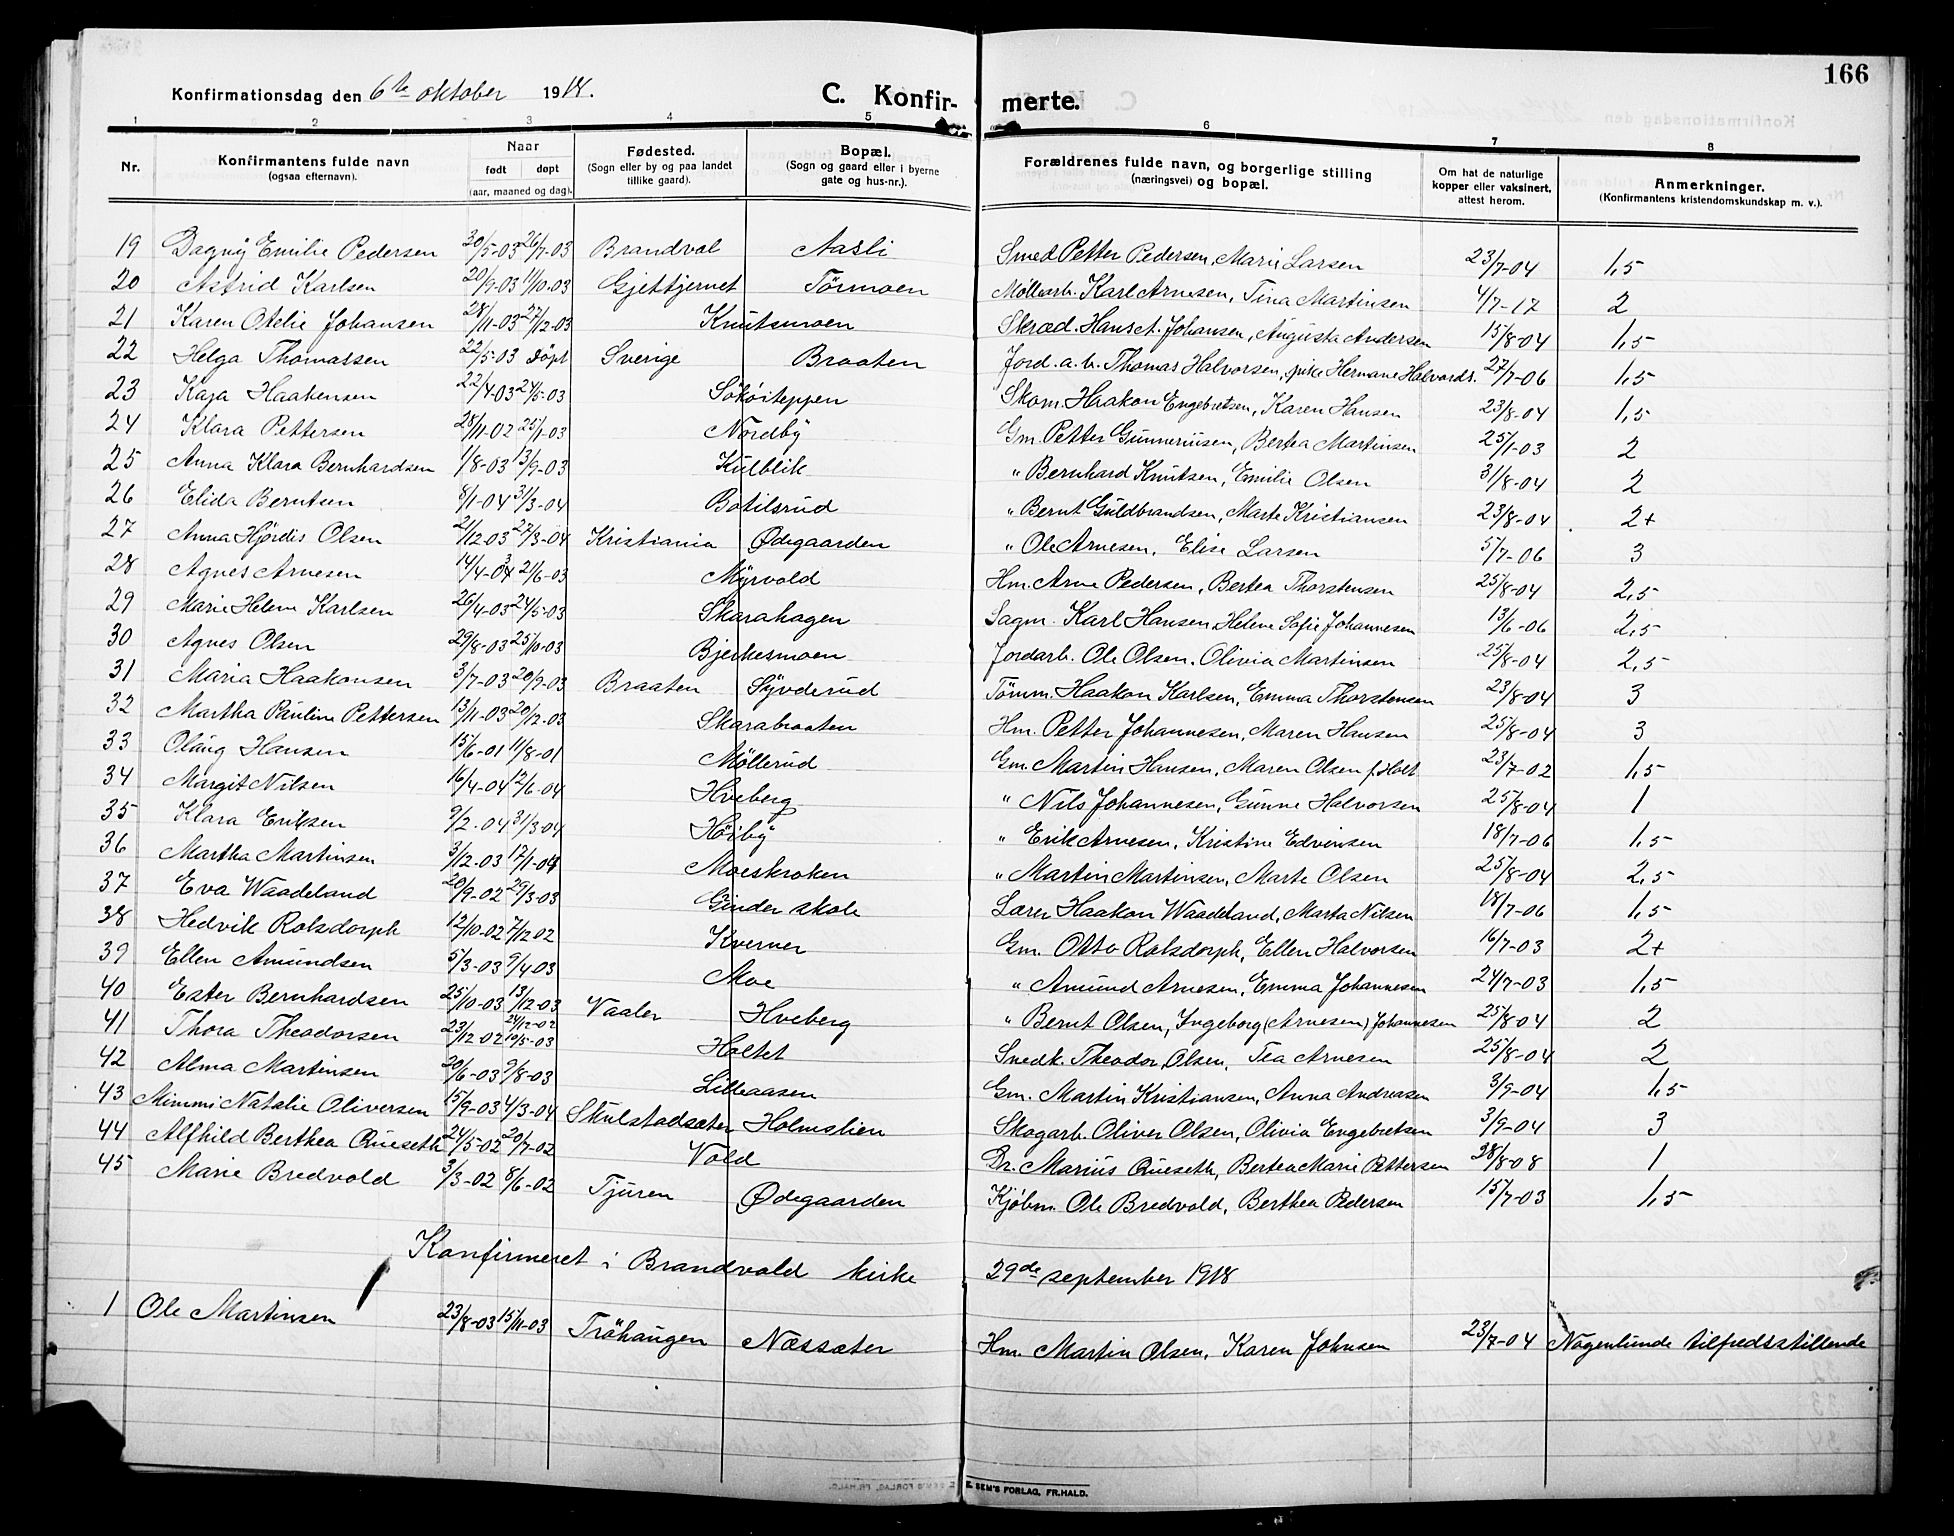 166
Konfirmationsdag den 6te oktober 1918.
C. Konfirmerte.
1 2 3 4 5 6 7 8
Nr. Konfirmantens fulde navn (ogsaa efternavn). Naar født døpt (aar, maaned og dag). Fødested. (Sogn eller by og paa landet tillike gaard). Bopæl. (Sogn og gaard eller i byerne gate og hus-nr.). Forældrenes fulde navn, og borgerlige stilling (næringsvei) og bopæl. Om hat de naturlige kopper eller vaksinert, attest herom. Anmerkninger. (Konfirmantens kristendomskundskap m. v.).
19 Dagny Emilie Pedersen 30/5-03 26/7-03 Brandval Aasli Smed Petter Pedersen, Marie Larsen 23/7-04 1,5
20 Astrid Karlsen 20/9-03 11/10-03 Gjettjernet Törmoen Møllearb. Karl Arnesen, Tina Martinsen 4/7-17 2
21 Karen Otelie Johansen 28/11-03 27/12-03 Knutsmoen Skræd. Hans A. Johansen, Augusta Andersen 15/8-04 1,5
22 Helga Thomassen 22/5-03 døpt Sverige Braaten Jord.a.b. Thomas Halvorsen, pike Hermane Halvords. 27/7-06 1,5
23 Kaja Haakensen 22/4-03 24/5-03 Sököiteppen Skom. Haakon Engebretsen, Karen Hansen 23/8-04 1,5
24 Klara Pettersen 28/11-02 25/1-03 Nordby Gm. Petter Gunneriusen, Bertea Martinsen 25/1-03 2
25 Anna Klara Bernhardsen 1/8-03 13/9-03 Kulblik " Bernhard Knutsen, Emilie Olsen 31/8-04 2
26 Elida Berntsen 8/1-04 31/3-04 Botilsrud " Bernt Guldbrandsen, Marte Kristiansen 23/8-04 2+
27 Anna Hjördis Olsen 21/12-03 27/3-04 Kristiania Ødegaarden " Ole Arnesen, Elise Larsen 5/7-06 3
28 Agnes Arnesen 14/4-03 21/6-03 Myrvold Hm. Arne Pedersen, Bertea Thorstensen 25/8-04 2,5
29 Marie Helene Karlsen 26/4-03 24/5-03 Skarahagen Sagm. Karl Hansen, Helene Sofie Johannesen 13/6-06 2,5
30 Agnes Olsen 29/8-03 25/10-03 Bjerkesmoen Jordarb. Ole Olsen, Olivia Martinsen 25/8-04 2,5
31 Maria Haakonsen 3/7-03 20/9-03 Braaten Syvderud Tømm. Haakon Karlsen, Emma Thorstensen 23/8-04 3
32 Martha Pauline Pettersen 13/11-03 20/12-03 Skarabraaten Hm. Petter Johannesen, Maren Hansen 25/8-04 3
33 Olaug Hansen 15/6-01 11/8-01 Möllerud Gm. Martin Hansen, Maren Olsen f. Holt 23/7-02 1,5
34 Margit Nilsen 16/4-04 12/6-04 Hveberg " Nils Johannesen, Gunne Halvorsen 25/8-04 1
35 Klara Eriksen 9/2-04 31/3-04 Höiby " Erik Arnesen, Kristine Edvinsen 18/7-06 1,5
36 Martha Martinsen 3/12-03 17/1-04 Moeskroken " Martin Martinsen, Marte Olsen 25/8-04 2,5
37 Eva Waadeland 20/9-02 29/3-03 Ginder skole Lærer Haakon Waadeland, Marta Nilsen 18/7-06 1,5
38 Hedvik Rolsdorph 12/10-02 7/12 02 Kverner Gm. Otto Rolsdorph, Ellen Halvorsen 16/7-03 2+
39 Ellen Amundsen 5/3-03 9/4-03 Moe " Amund Arnesen, Emma Johannesen 24/7-03 1,5
40 Ester Bernhardsen 25/10-03 13/12-03 Vaaler Hveberg " Bernt Olsen, Ingeborg (Arnesen) Johannesen 25/8-04 2
41 Thora Theodorsen 23/12-02 24/12-02 10/5-03 Holtet Snedk. Theodor Olsen, Tea Arnesen 25/8-04 2
42 Alma Martinsen 20/6-03 9/8-03 Lilleaasen Gm. Martin Kristiansen, Anna Andreasen 3/9-04 1,5
43 Mimmi Natalie Oliversen 15/9-03 4/3-04 Skulstadsæter Holmslien Skogarb. Oliver Olsen, Olivia Engebretsen 3/9-04 3
44 Alfhild Berthea Queseth 24/5-02 20/7-02 Vold Br. Marius Queseth, Bertea Marie Pettersen 28/8-08 1
45 Marie Bredvold 3/3-02 8/6-02 Tjuren Ødegaarden Kjøbm. Ole Bredvold, Berthea Pedersen 15/7-03 1,5
Konfirmeret i Brandvold kirke 29de september 1918
1 Ole Martinsen 23/8-03 15/11-03 Tröhaugen Næssæter Hm. Martin Olsen, Karen Johnsen 23/7-04 Nogenlunde tilfredsstillende
E. SEM'S FORLAG, FR.HALD.